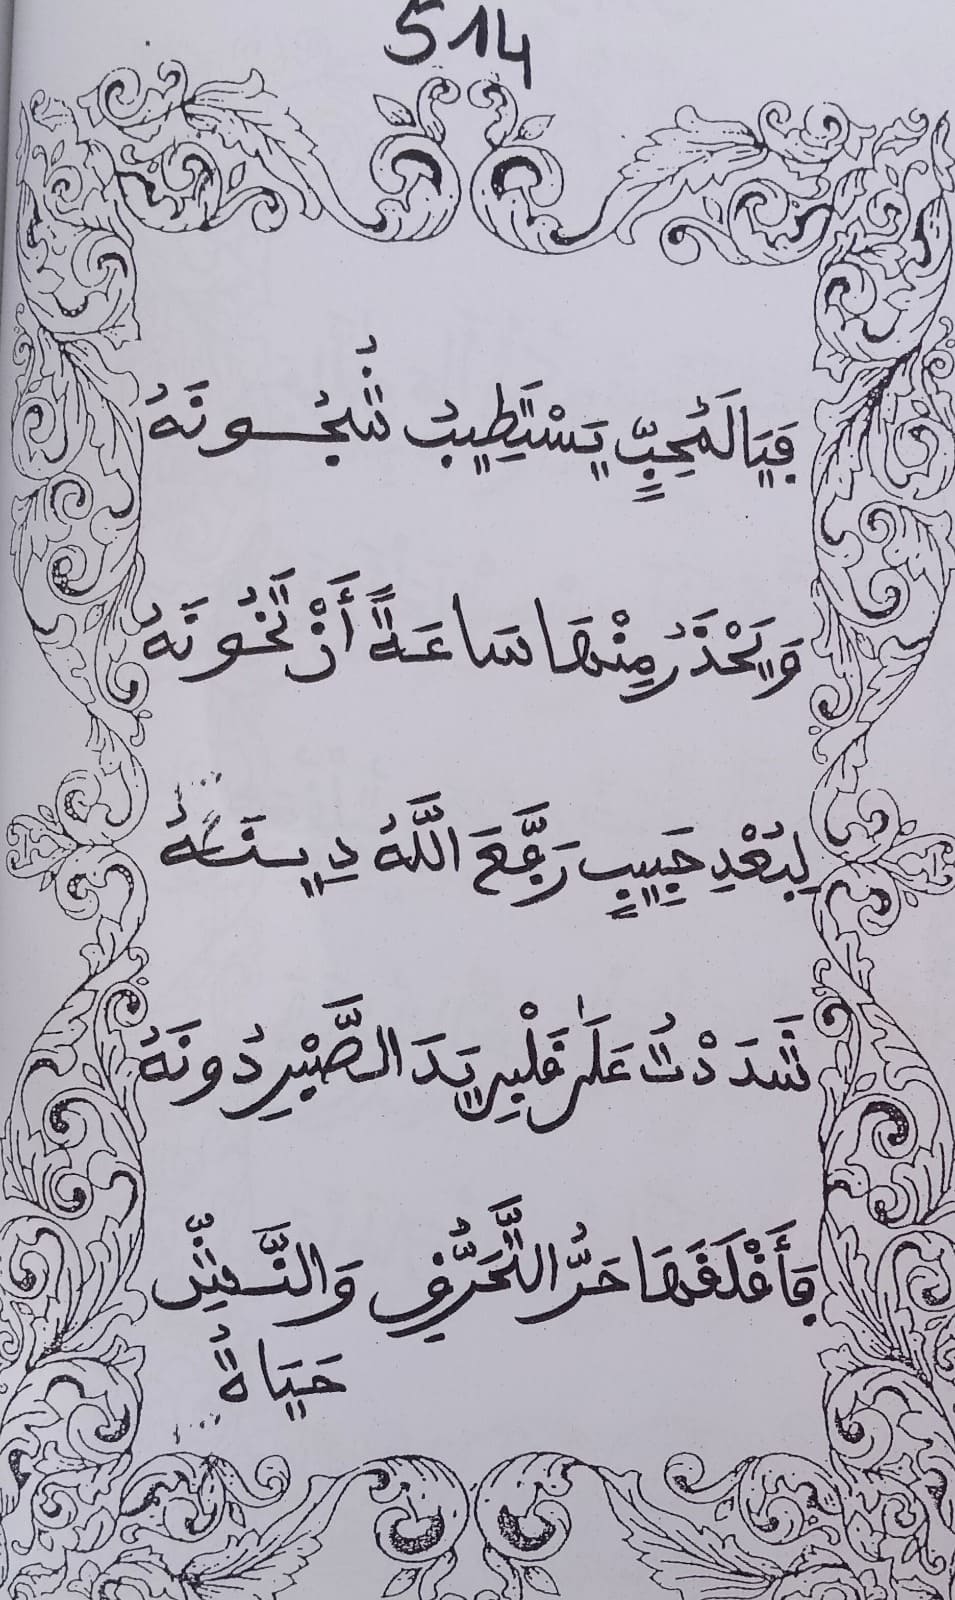 514
فَيَا لَمُحِبٍّ يَسْتَطِيبُ شُجُونَهُ
وَيَحْذَرُ مِنْهَا سَاعَةً أَنْ تَخُونَهُ
لِبُعْدِ حَبِيبٍ رَفَّعَ اللَّهُ دِينَهُ
شَدَدْتُ عَلَى قَلْبِي يَدَ الصَّبْرِ دُونَهُ
فَأَقْلَقَهَا حَرُّ التَّحَرُّقِ
حَيَاةُ